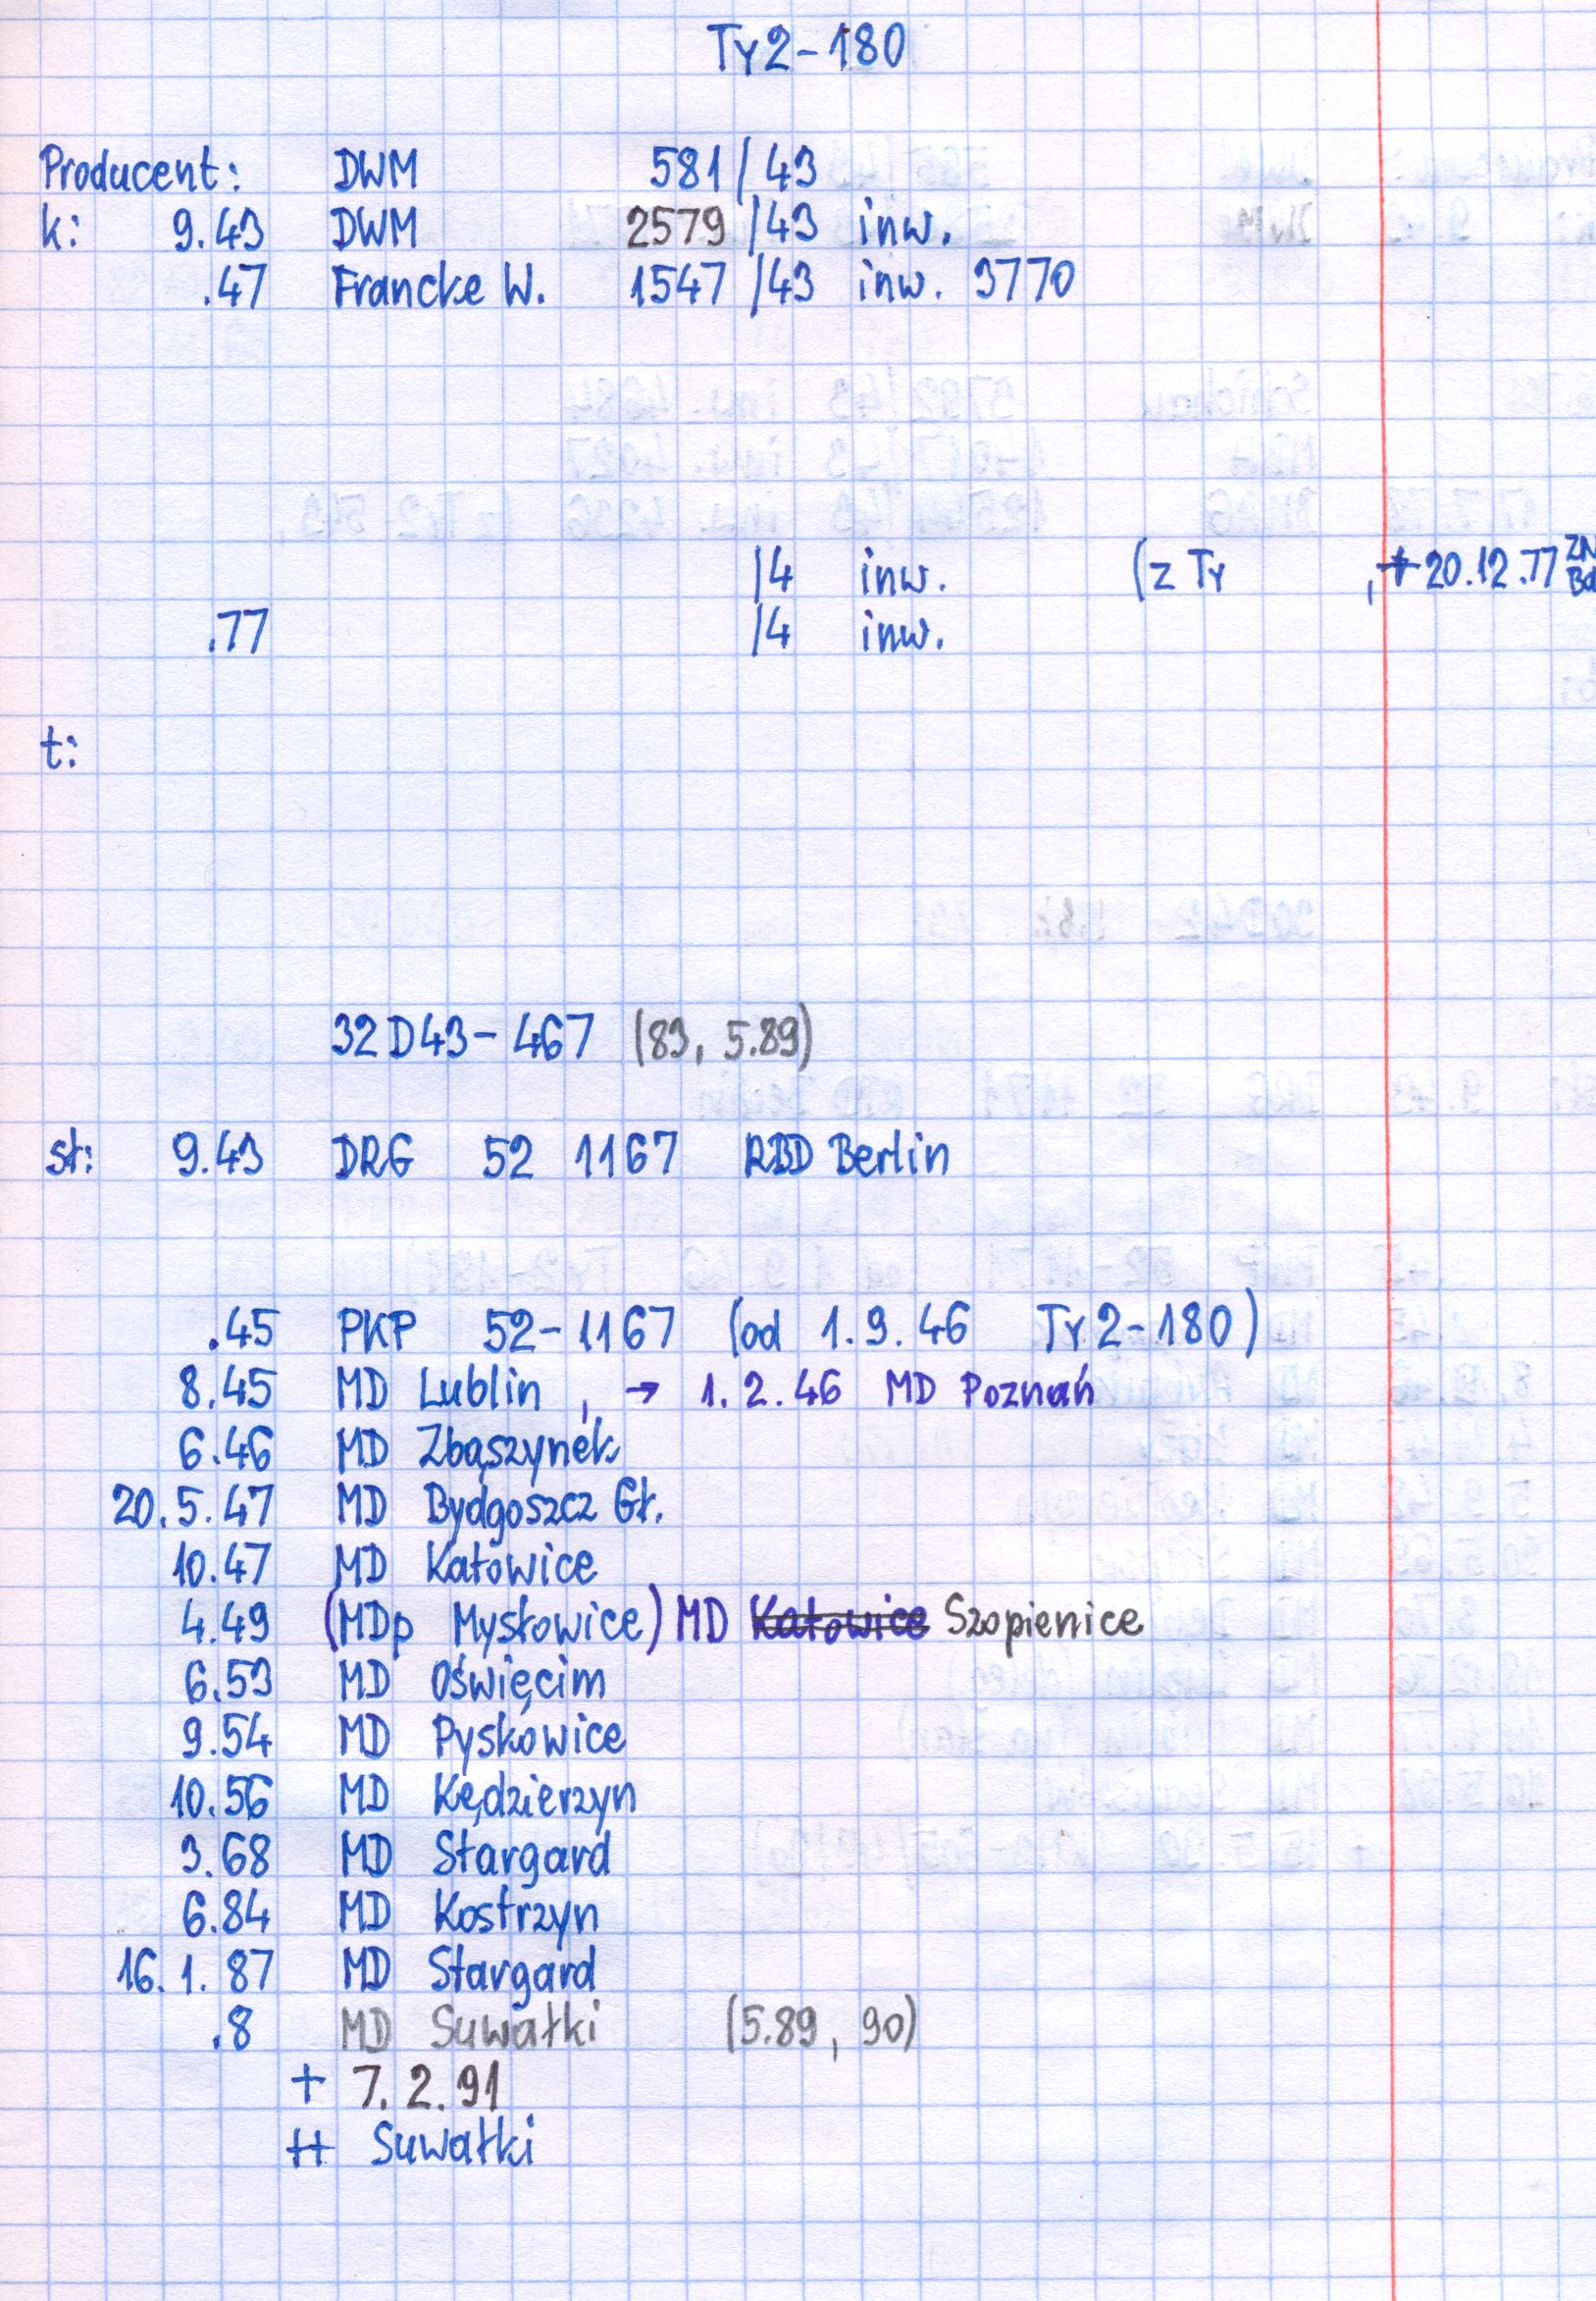 Ty2-180
Producent: DWM 581/43
k: 9.43 DWM 2579/43 inw.
.47 Francke W. 1547/43 inw. 3770
/4 inw. (z Ty , + 20.12.77 ZN
.77 /4 inw.
t:
32D43-467 (83, 5.89)
st: 9.43 DRG 52 1167 RBD Berlin
.45 PKP 52-1167 (od 1.9.46 Ty2-180)
8.45 MD Lublin , → 1.2.46 MD Poznań
6.46 MD Zbąszynek
20.5.47 MD Bydgoszcz Gł.
10.47 MD Katowice
4.49 (MDp Mysłowice) MD Katowice Szopienice
6.53 MD Oświęcim
9.54 MD Pyskowice
10.56 MD Kędzierzyn
3.68 MD Stargard
6.84 MD Kostrzyn
16.1.87 MD Stargard
.8 MD Suwałki (5.89, 90)
+ 7.2.91
++ Suwałki